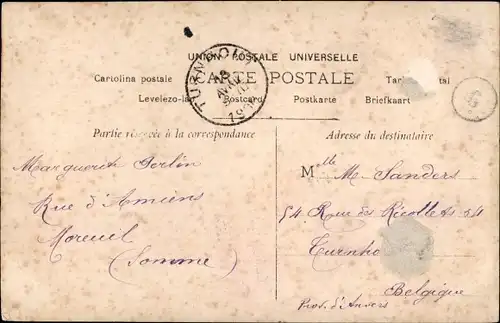 UNION POSTALE UNIVERSELLE
CARTE POSTALE
Cartolina postale
Levelezo-la
Postcard
Postkarte
Briefkaart
TURNHOUT
G
Partie réservée à la correspondance
Marguerite
Rue d'Amiens
Moreuil
(Somme)
Adresse du destinataire
Mlle M. Sanders
54 Rue des Ricollets 54
Turnho
Belgique
Prov. d'Anvers